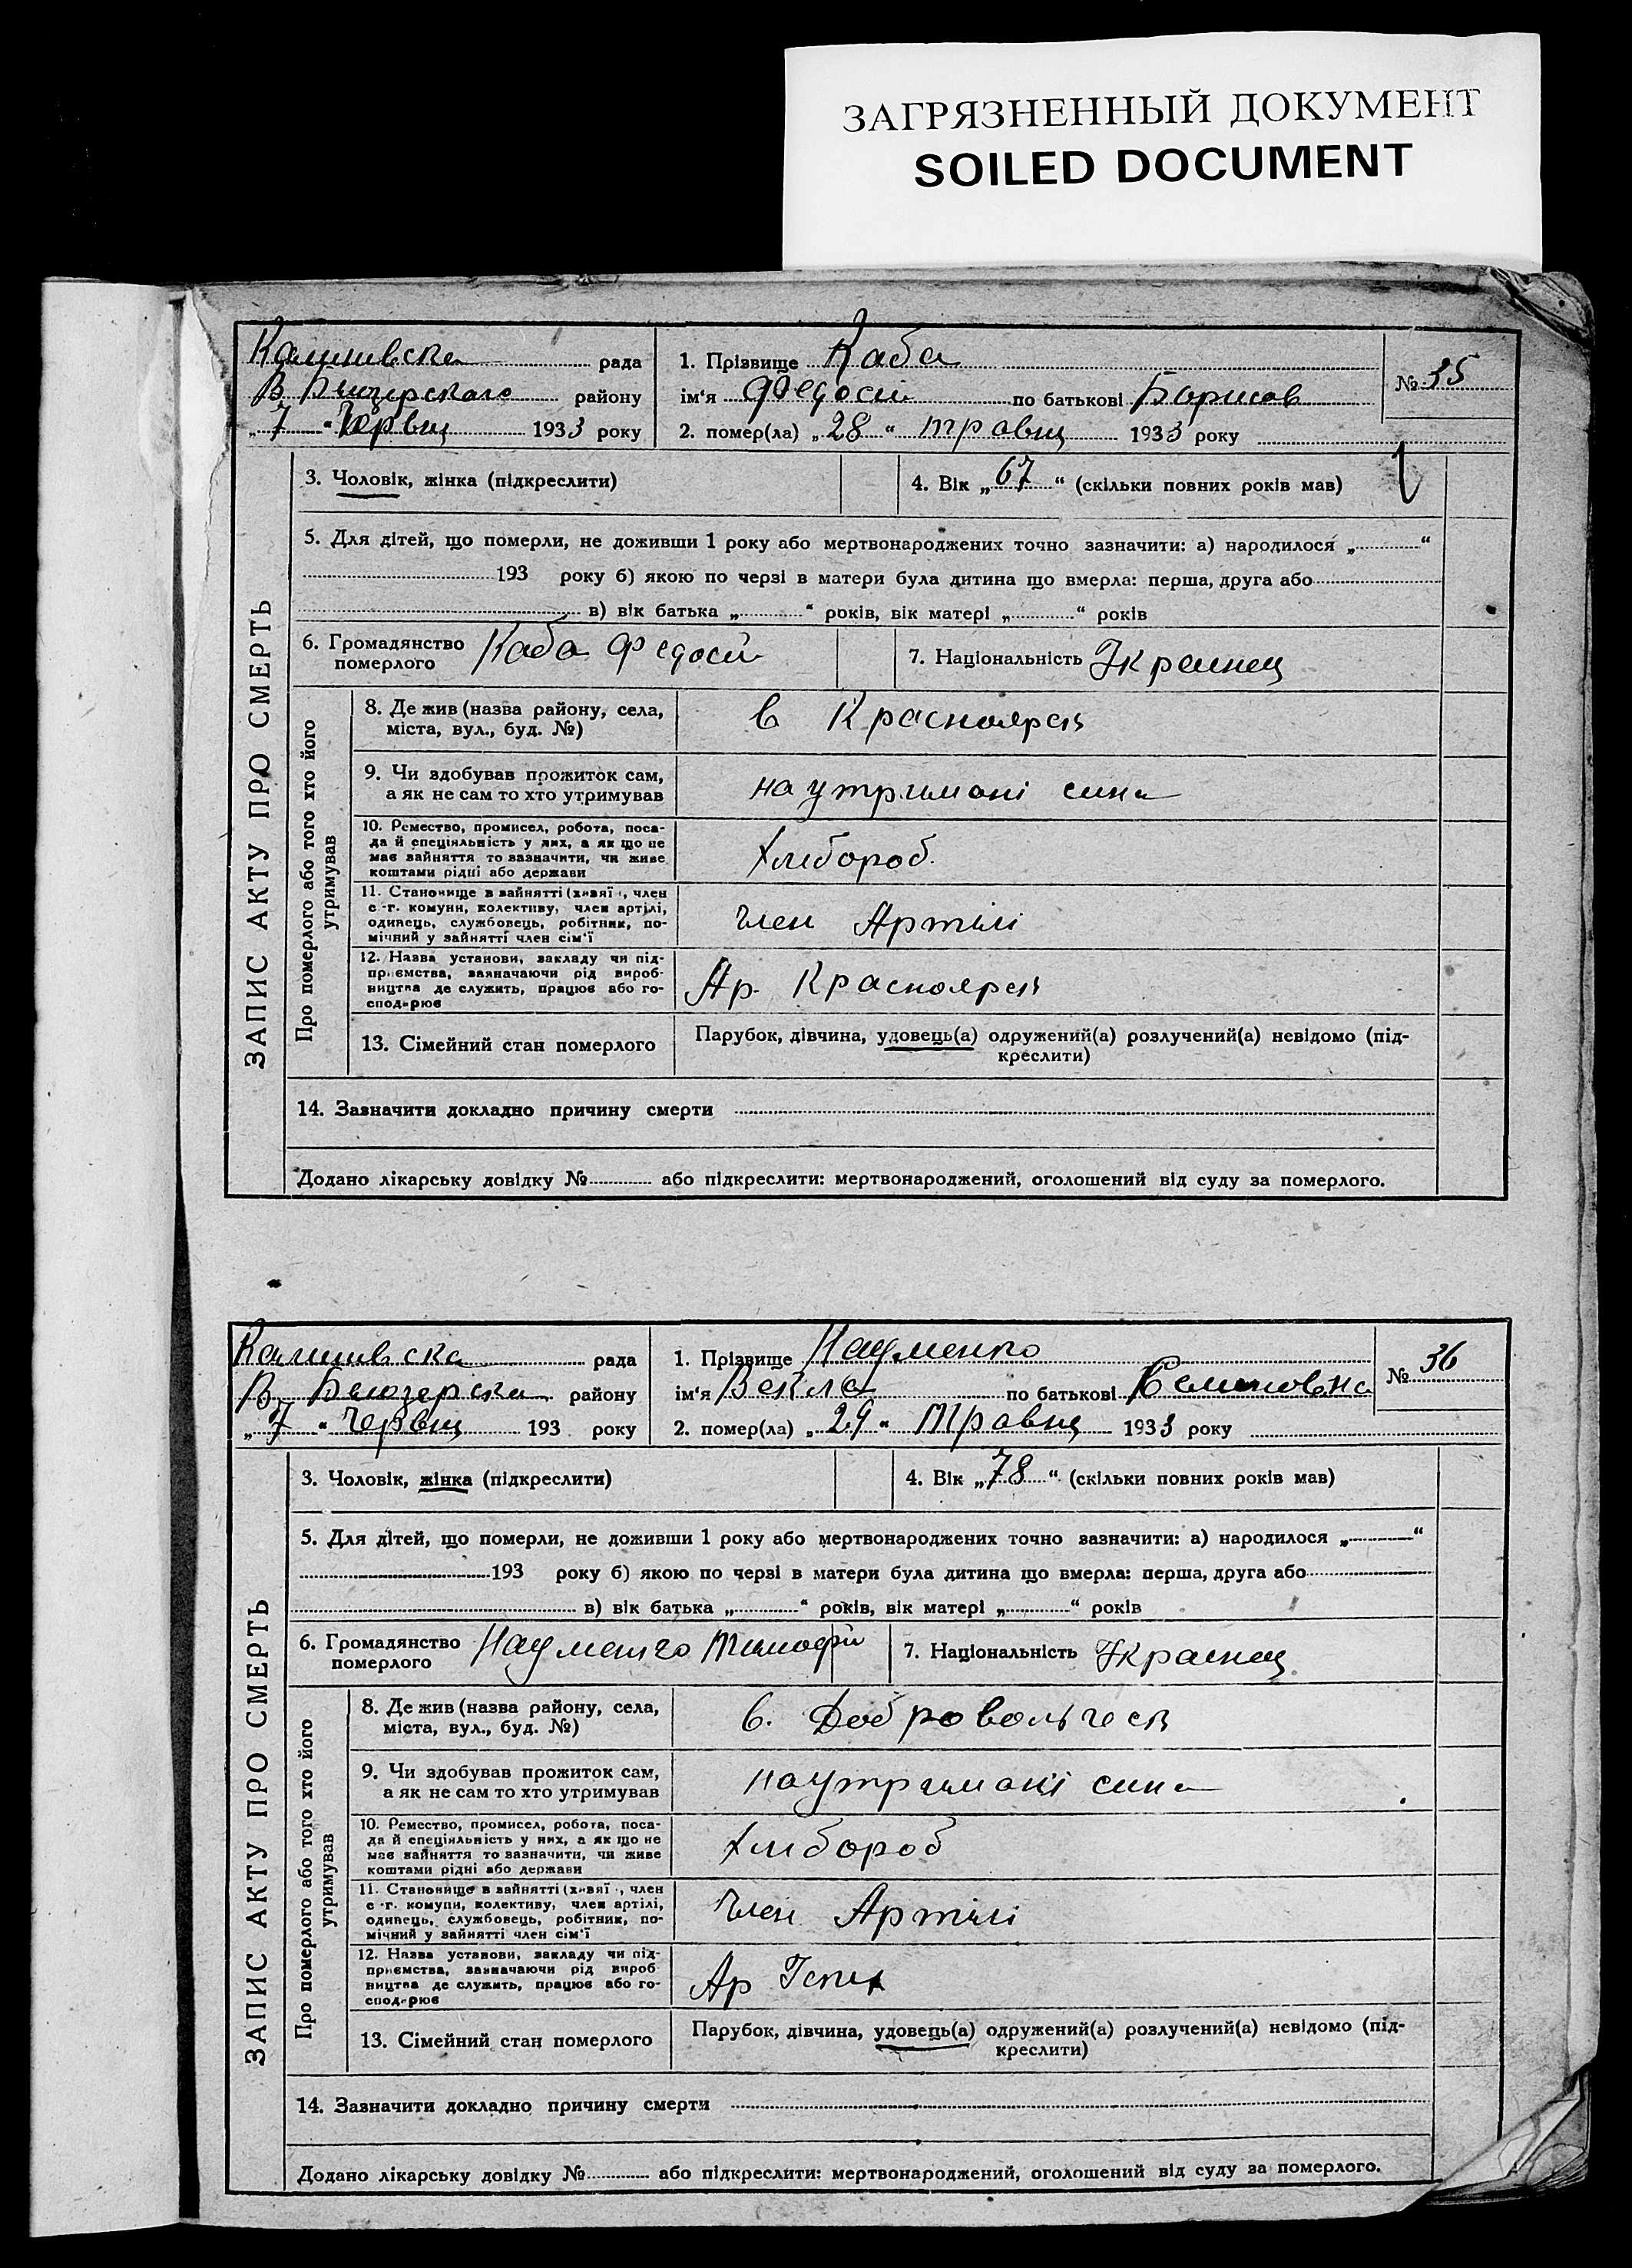 ЗАГРЯЗНЕННЫЙ ДОКУМЕНТ
SOILED DOCUMENT
рада
В района
„ 7 “ Червц 1933 року
1. Прізвище Каба
ім'я Федосій по батькові Борисов
2. помер(ла) „ 28 “ травц 1933 року
№ 35
ЗАПИС АКТУ ПРО СМЕРТЬ
3. Чоловік, жінка (підкреслити)
4. Вік „ 67 “ (скільки повних років мав)
5. Для дітей, що померли, не доживши 1 року або мертвонароджених точно зазначити: а) народилося „ “
193 року б) якою по черзі в матери була дитина що вмерла: перша, друга або
в) вік батька „ “ років, вік матері „ “ років
6. Громадянство померлого Каба Федосій
7. Національність Украинец
Про померлого або того хто його утримував
8. Де жив (назва району, села,
міста, вул., буд. №)
в Красноярск
9. Чи здобував прожиток сам,
а як не сам то хто утримував
на утримані сина
10. Ремество, промисел, робота, поса-
да й спеціяльність у них, а як що не
має зайняття то зазначити, чи живе
коштами рідні або держави
Хлибороб
11. Становище в зайнятті (хазяї , член
с.-г. комуни, колективу, член артілі,
одинець, службовець, робітник, по-
мічний у зайнятті член сім'ї
Член Артілі
12. Назва установи, закладу чи під-
приємства, зазначаючи рід вироб-
ництва де служить, працює або го-
сподарює
Ар. Красноярск
13. Сімейний стан померлого
Парубок, дівчина, удовець(а) одружений(а) розлучений(а) невідомо (під-
креслити)
14. Зазначити докладно причину смерти
Додано лікарську довідку № або підкреслити: мертвонароджений, оголошений від суду за померлого.
рада
В. району
„ 7 “ Червц 193 року
1. Прізвище Науменко
ім'я по батькові Семеновна
2. помер(ла) „ 29 “ Травц 1933 року
№ 36
ЗАПИС АКТУ ПРО СМЕРТЬ
3. Чоловік, жінка (підкреслити)
4. Вік „ 78 “ (скільки повних років мав)
5. Для дітей, що померли, не доживши 1 року або мертвонароджених точно зазначити: а) народилося „ “
193 року б) якою по черзі в матери була дитина що вмерла: перша, друга або
в) вік батька „ “ років, вік матері „ “ років
6. Громадянство померлого Науменко Тимофій
7. Національність Украинец
Про померлого або того хто його утримував
8. Де жив (назва району, села,
міста, вул., буд. №)
в. Добровольческ
9. Чи здобував прожиток сам,
а як не сам то хто утримував
на утримані сина
10. Ремество, промисел, робота, поса-
да й спеціяльність у них, а як що не
має зайняття то зазначити, чи живе
коштами рідні або держави
Хлибороб
11. Становище в зайнятті (хазяї , член
с.-г. комуни, колективу, член артілі,
одинець, службовець, робітник, по-
мічний у зайнятті член сім'ї
Член Артілі
12. Назва установи, закладу чи під-
приємства, зазначаючи рід вироб
ництва де служить, працює або го-
сподарює
Ар
13. Сімейний стан померлого
Парубок, дівчина, удовець(а) одружений(а) розлучений(а) невідомо (під-
креслити)
14. Зазначити докладно причину смерти
Додано лікарську довідку № або підкреслити: мертвонароджений, оголошений від суду за померлого.